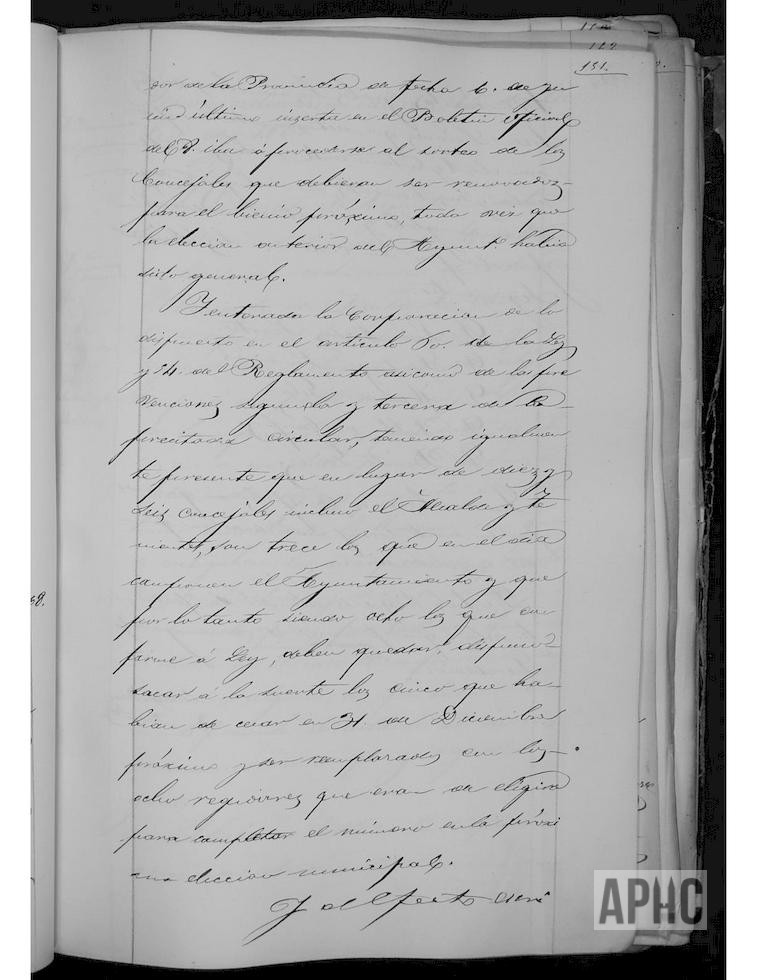 112
119
151.
dor de la Provincia de fecha 6. de ju
nio último inserta en el Boletin oficial
de E. P. iba á procederse al sorteo de los
Concejales que debieran ser renovados
para el bienio próximo, toda vez que
la eleccion anterior del Ayuntº habia
sido general.
Y enterada la Corporacion de lo
dispuesto en el artículo 60. de la Ley
y 54. del Reglamento asi como de las pre
venciones segunda y tercera de la
precitada circular, teniendo igualmen
te presente que en lugar de diez y
seis concejales incluso el Alcalde y Te
nientes, son trece los que en el dia
componen el Ayuntamiento y que
por lo tanto siendo ocho los que con
forme á Ley, deben quedar, dispuso
sacar á la suerte los cinco que ha-
bian de cesar en 31. de Diciembre
próximo y ser remplazados con los
ocho regidores que eran de eligirse
para completar el número en la próxi
ma eleccion municipal.
Y al efecto
58.
APHC